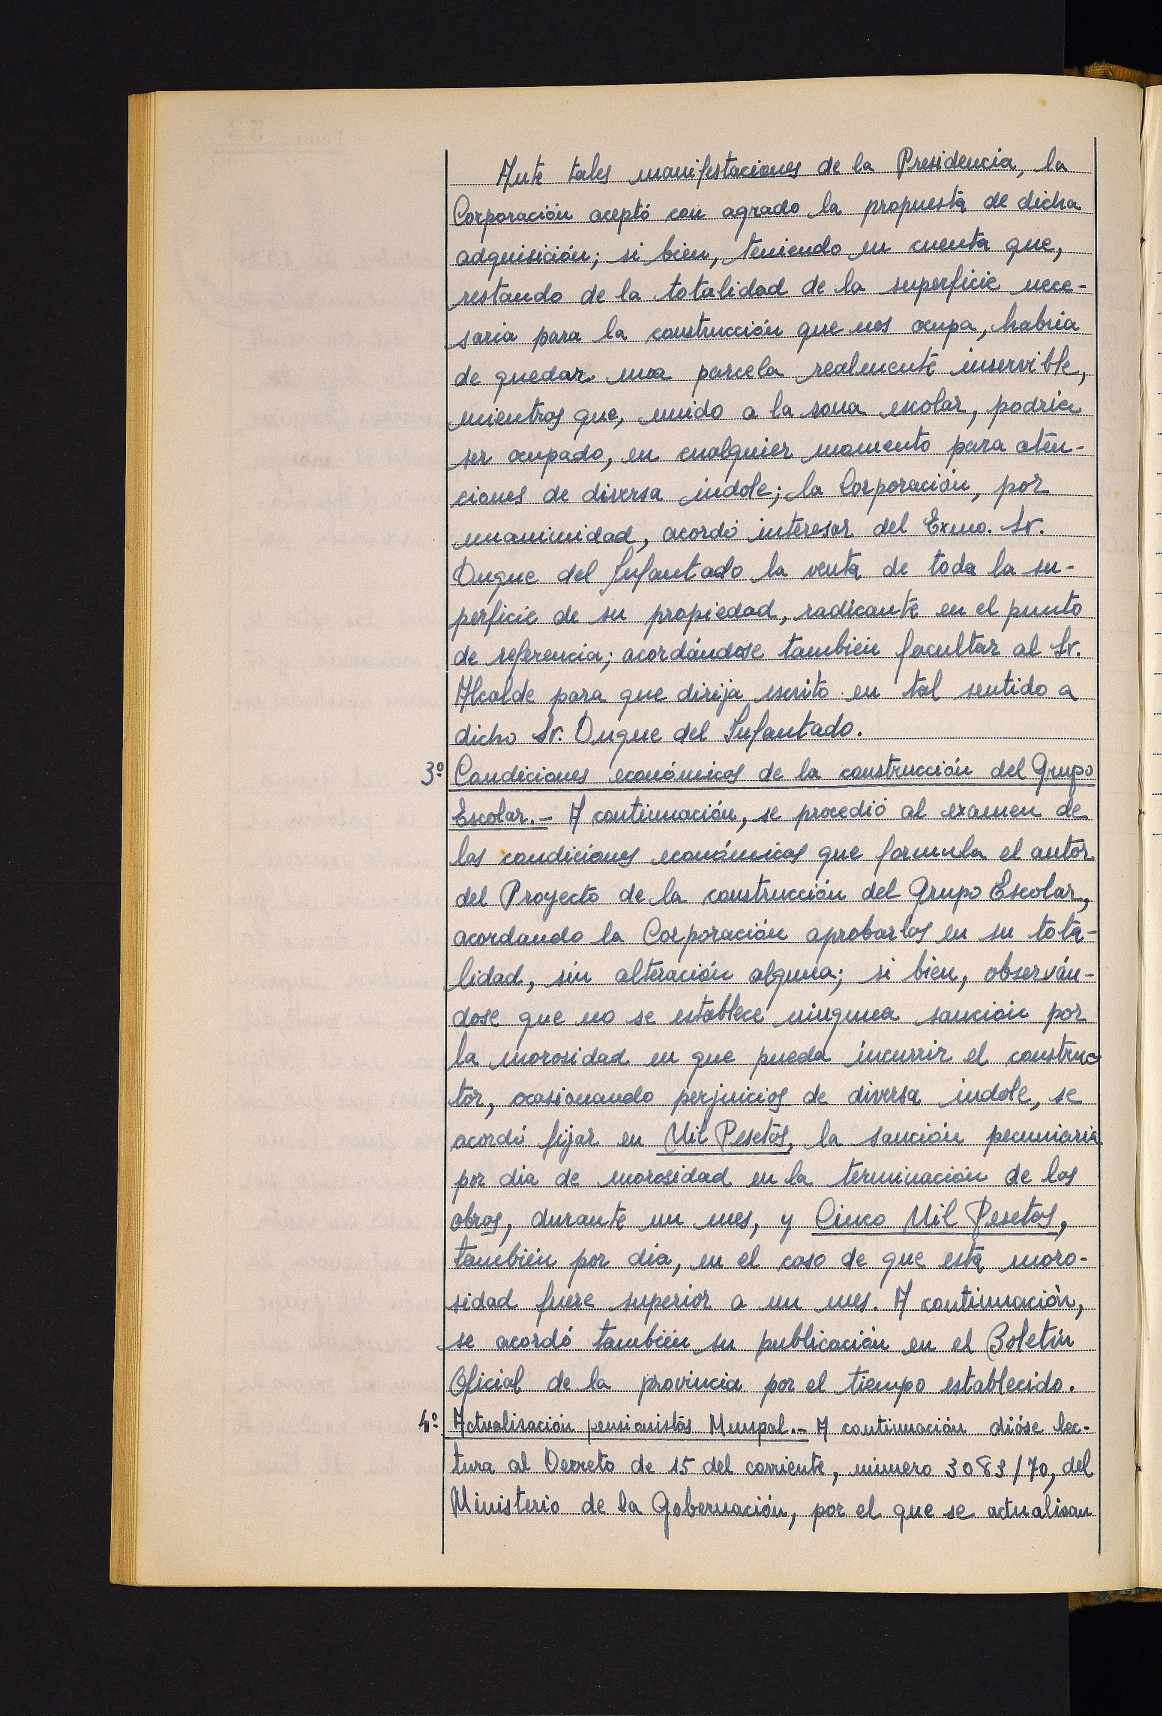 Ante tales manifestaciones de la Presidencia, la
Corporación aceptó con agrado la propuesta de dicha
adquisición; si bien, teniendo en cuenta que,
restando de la totalidad de la superficie nece-
saria para la construcción que nos ocupa, habría
de quedar una parcela realmente inservible,
mientras que, unido a la zona escolar, podría
ser ocupado, en cualquier momento para aten-
ciones de diversa índole; la Corporación, por
unanimidad, acordó interesar del Exmo. Sr.
Duque del Infantado la venta de toda la su-
perficie de su propiedad, radicante en el punto
de referencia; acordándose también facultar al Sr.
Alcalde para que dirija escrito en tal sentido a
dicho Sr. Duque del Infantado.
3º Condiciones económicas de la construcción del Grupo
Escolar.- A continuación, se procedió al examen de
las condiciones económicas que formula el autor
del Proyecto de la construcción del Grupo Escolar,
acordando la Corporación aprobarlas en su tota-
lidad, sin alteración alguna; si bien, observán-
dose que no se establece ninguna sanción por
la morosidad en que pueda incurrir el construc
tor, ocasionando perjuicios de diversa índole, se
acordó fijar en Mil Pesetas, la sanción pecuniaria
por día de morosidad en la terminación de las
obras, durante un mes, y Cinco Mil Pesetas,
también por día, en el caso de que esta moro-
sidad fuere superior a un mes. A continuación,
se acordó también su publicación en el Boletín
Oficial de la provincia por el tiempo establecido.
4º Actualización pensionistas Munpal.- A continuación dióse lec-
tura al Decreto de 15 del corriente, número 3083/70, del
Ministerio de la Gobernación, por el que se actualizan